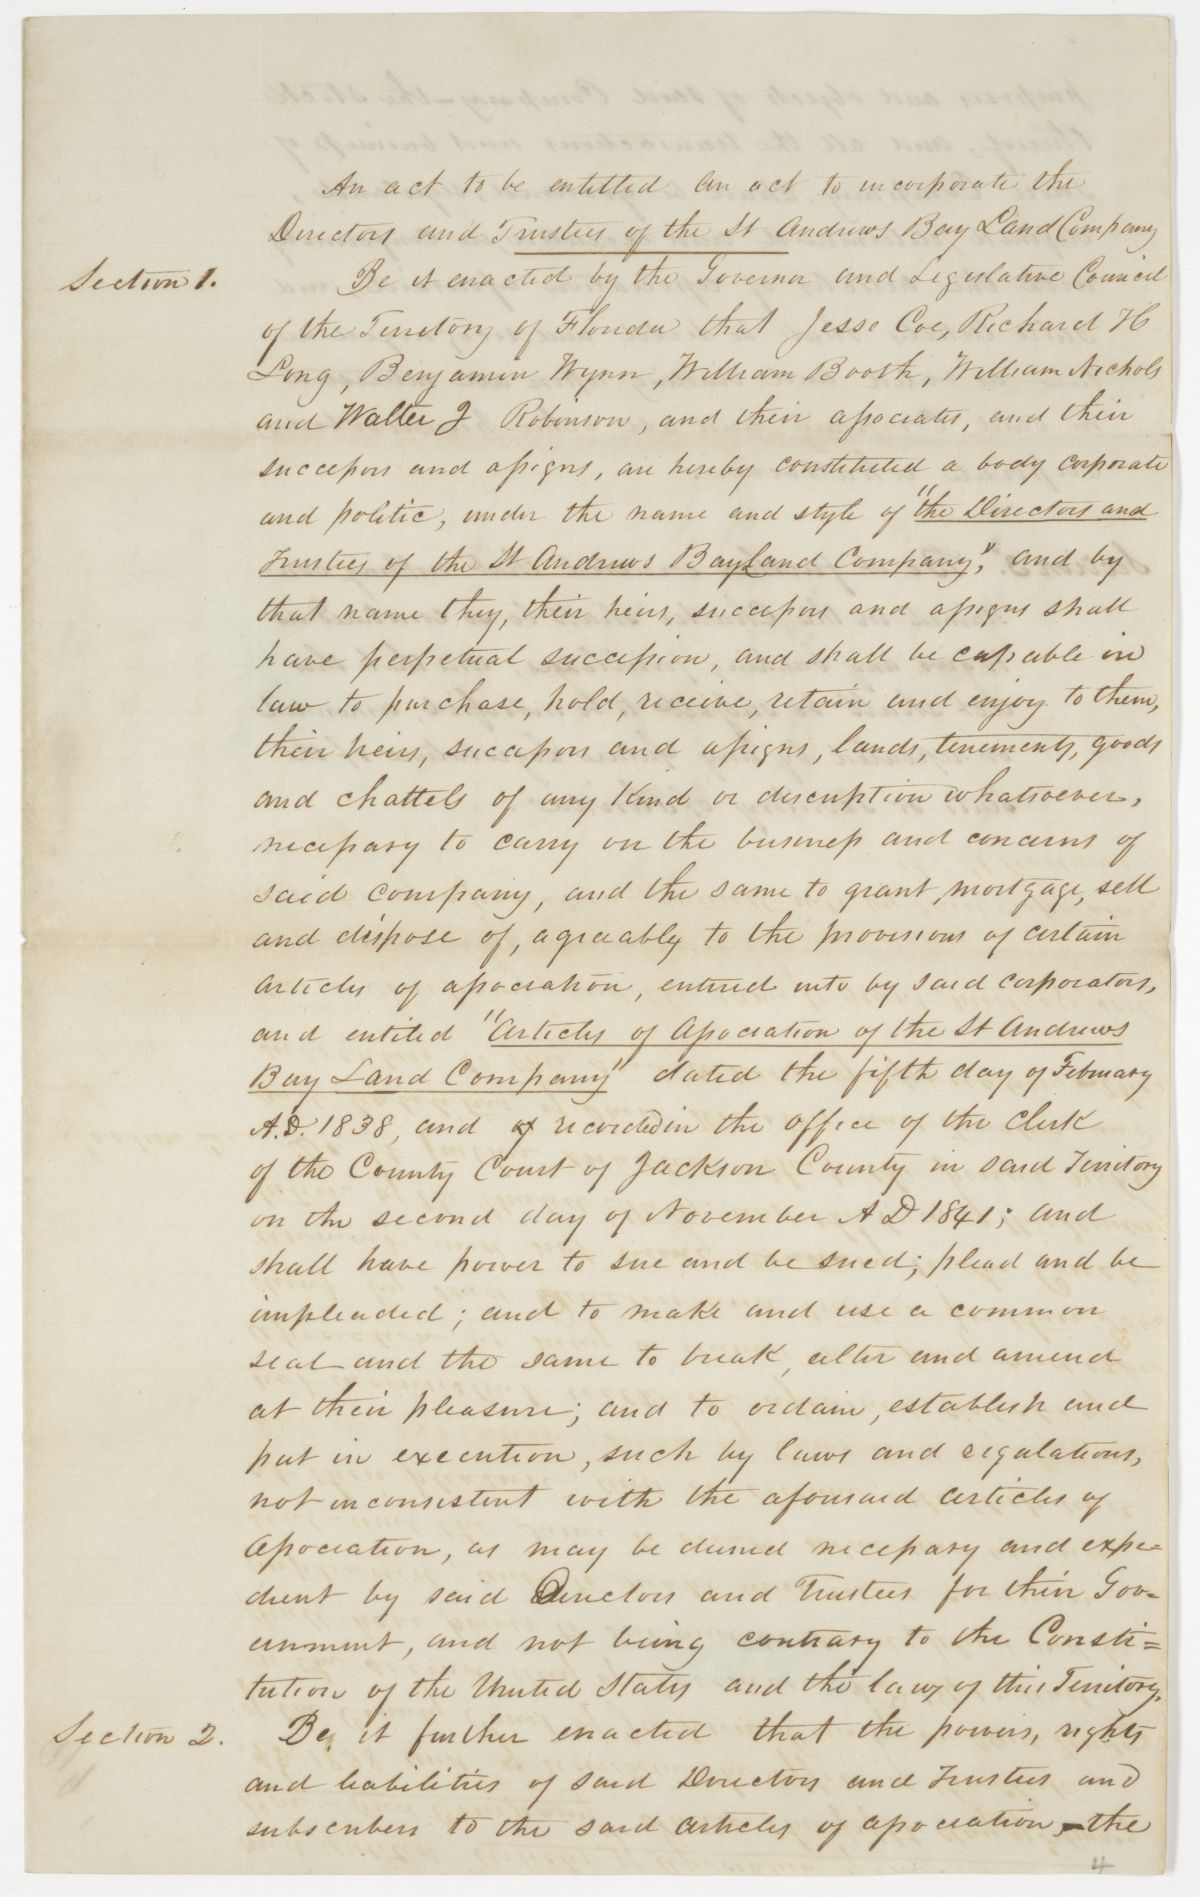 An act to be entitled an act to incorporate the
Directors and Trustees of the St Andrews Bay Land Company
Section 1. Be it enacted by the Governor and Legislative Council
of the Territory of Florida that Jesse Coe, Richard H
Long, Benjamin Wynn, William Booth, William Nichols
and Walter J Robinson, and their associates, and their
successors and assigns, are hereby constituted a body corporate
and politic, under the name and style of "the Directors and
Trustees of the St Andrews Bay Land Company", and by
that name they, their heirs, successors and assigns shall
have perpetual succession, and shall be capable in
law to purchase, hold, receive, retain and enjoy to them,
their heirs, successors and assigns, lands, tenements, goods
and chattels of any Kind or description whatsoever,
necessary to carry on the business and concerns of
said company, and the same to grant, mortgage, sell
and dispose of, agreeably to the provisions of certain
articles of association, entered into by said corporators,
and entitled "Articles of Association of the St Andrews
Bay Land Company" dated the fifth day of February
A.D. 1838, and recorded in the office of the Clerk
of the County Court of Jackson County in said Territory
on the second day of November A D 1841; and
shall have power to sue and be sued; plead and be
impleaded; and to make and use a common
seal and the same to break, alter and amend
at their pleasure; and to ordain, establish and
put in execution, such by laws and regulations,
not inconsistent with the aforesaid articles of
Association, as may be deemed necessary and expe=
dient by said Directors and Trustees for their Gov=
ernment, and not being contrary to the Consti=
tution of the United States and the laws of this Territory.
Section 2. Be it further enacted that the powers, rights
and liabilities of said Directors and Trustees and
subscribers to the said articles of association, the
4